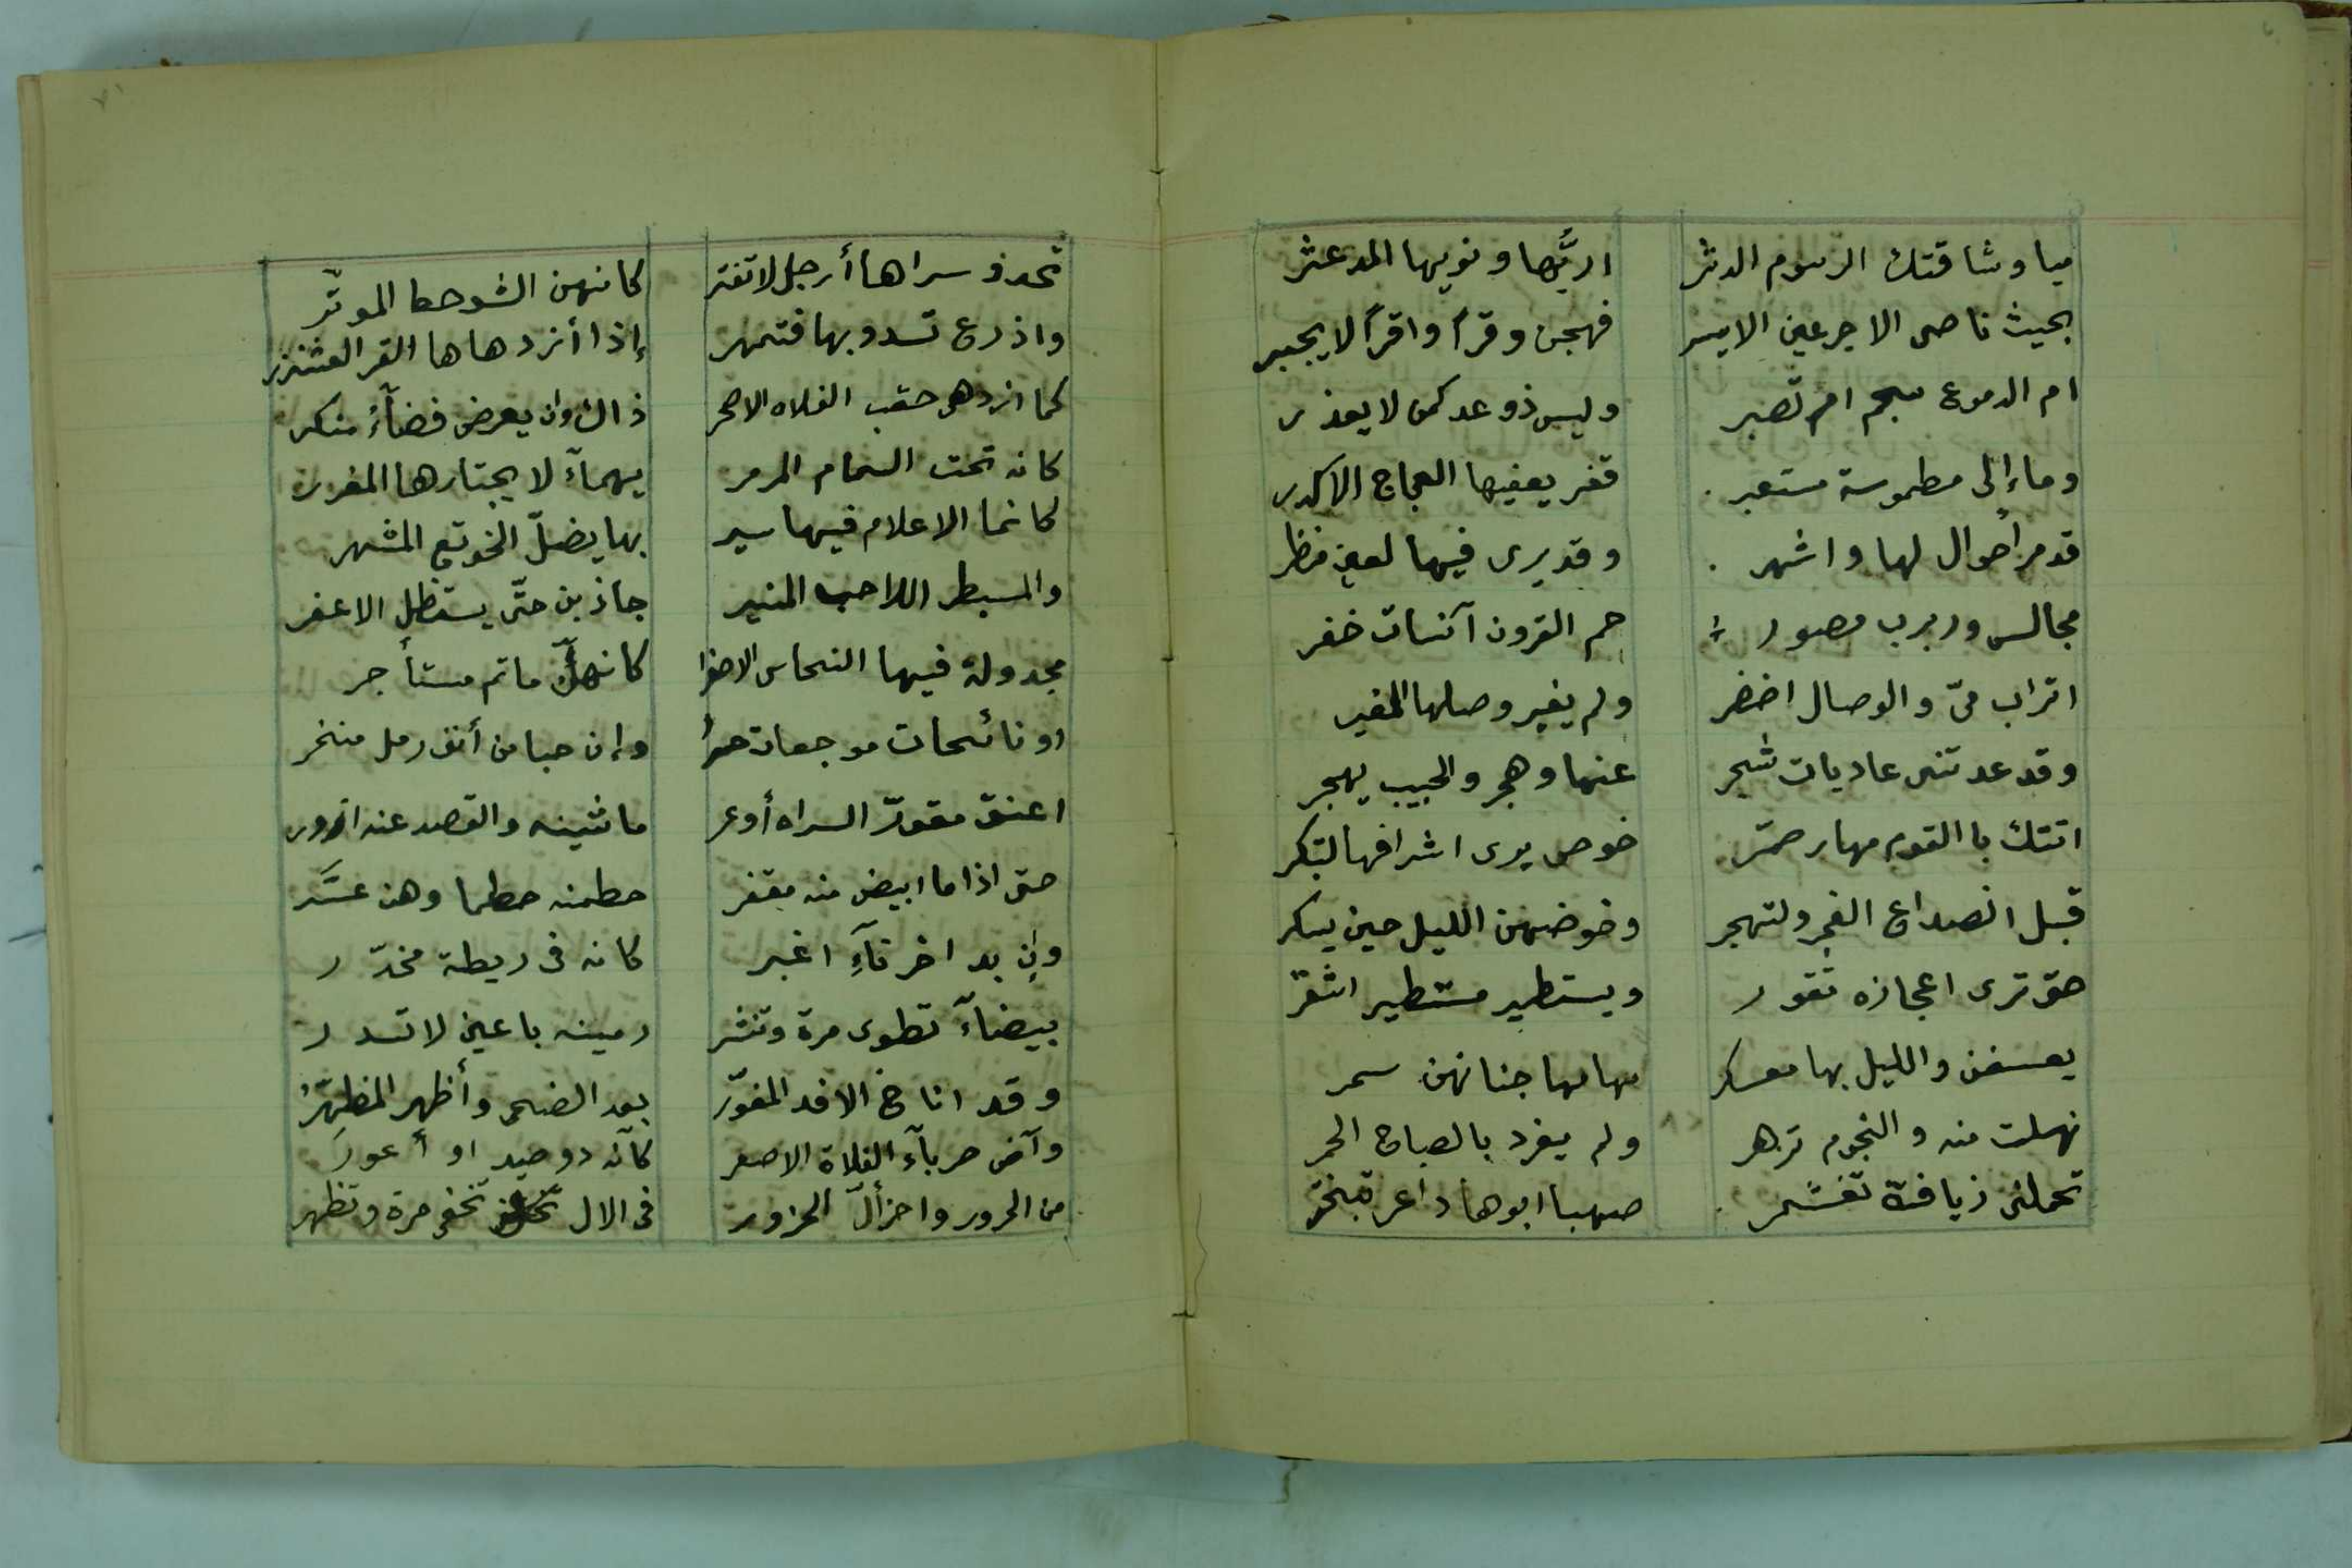 ميا وشاقتك الرسوم الدثر اريُّها ونويها المدعثر
بحيث ناصى الاجرعين الايسر فهجن وقرا واقراً لا يجبر
ام الدموع سجم ام تصبر وليس ذو عد كمن لا يعذر
وما إلى مطموسة مستعبر قفر يعفيها العجاج الاكدر
قد مر أحوال لها واشهر وقد يرى فيها لعين منظر
مجالس وربرب مصور حم القرون آنسات خفر
اتراب مىّ والوصال اخضر ولم يغير وصلها المغير
وقد عدتنى عاديات شجر عنها وهجر والحبيب يهجر
اتتك با القوم مهار ضمّر خوص يرى اشرافها لتبكر
قبل انصداع الفجر ولتهجر وخوضهن الليل حين يسكر
حتى ترى اعجازه تقور ويستطير مستطير اشقر
يعسفن والليل بها معسكر مهامها جنانهن سمر
نهلت منه والنجوم تزهر ولم يغرد بالصباح الحمر
تحملنى زيافة تغشمر صهبا ابوها داعر تبختر
٧١
تحذو سراها أرجل لا تفتر كانهن الشوحط الموتّر
واذرع تسدو بها فتمهر إذا أزدهاها القر العشنزر
كما ازدهى حقب الفلاه الاصحر ذاك وان يعرض فضآء منكر
كانه تحت السمام المرمر يهمآء لا يجتازها المغرر
كانما الاعلام فيها سير بها يضلّ الخوتع المشهر
والمسبطر اللاحب المنير جاذبن حتّى يستظل الاعفر
مجدولة فيها النحاس الاصفر كانهنّ ماتم مستأجر
او نائحات موجعات حسر وإن حبا من أنف رمل منخر
اعنق مقورّ السراه أوعر ماشينه والقصد عنه ازور
حتى اذا ما ابيض منه مقفر حطمنه حطما وهن عسَّر
وإن بدا خرقآءِ اغبر كانه فى ريطة مخدّر
بيضآء تطوى مرة وتنشر رمينه باعين لا تسدر
وقد اناخ الافد المغوّر بعد الضحى وأظهر المظهّرُ
وآض حربآء الفلاة الاصعر كأنه ذو صيد او أعورَ
من الحرور واحزألّ الحزور فى الال تخفى مرة وتظهر